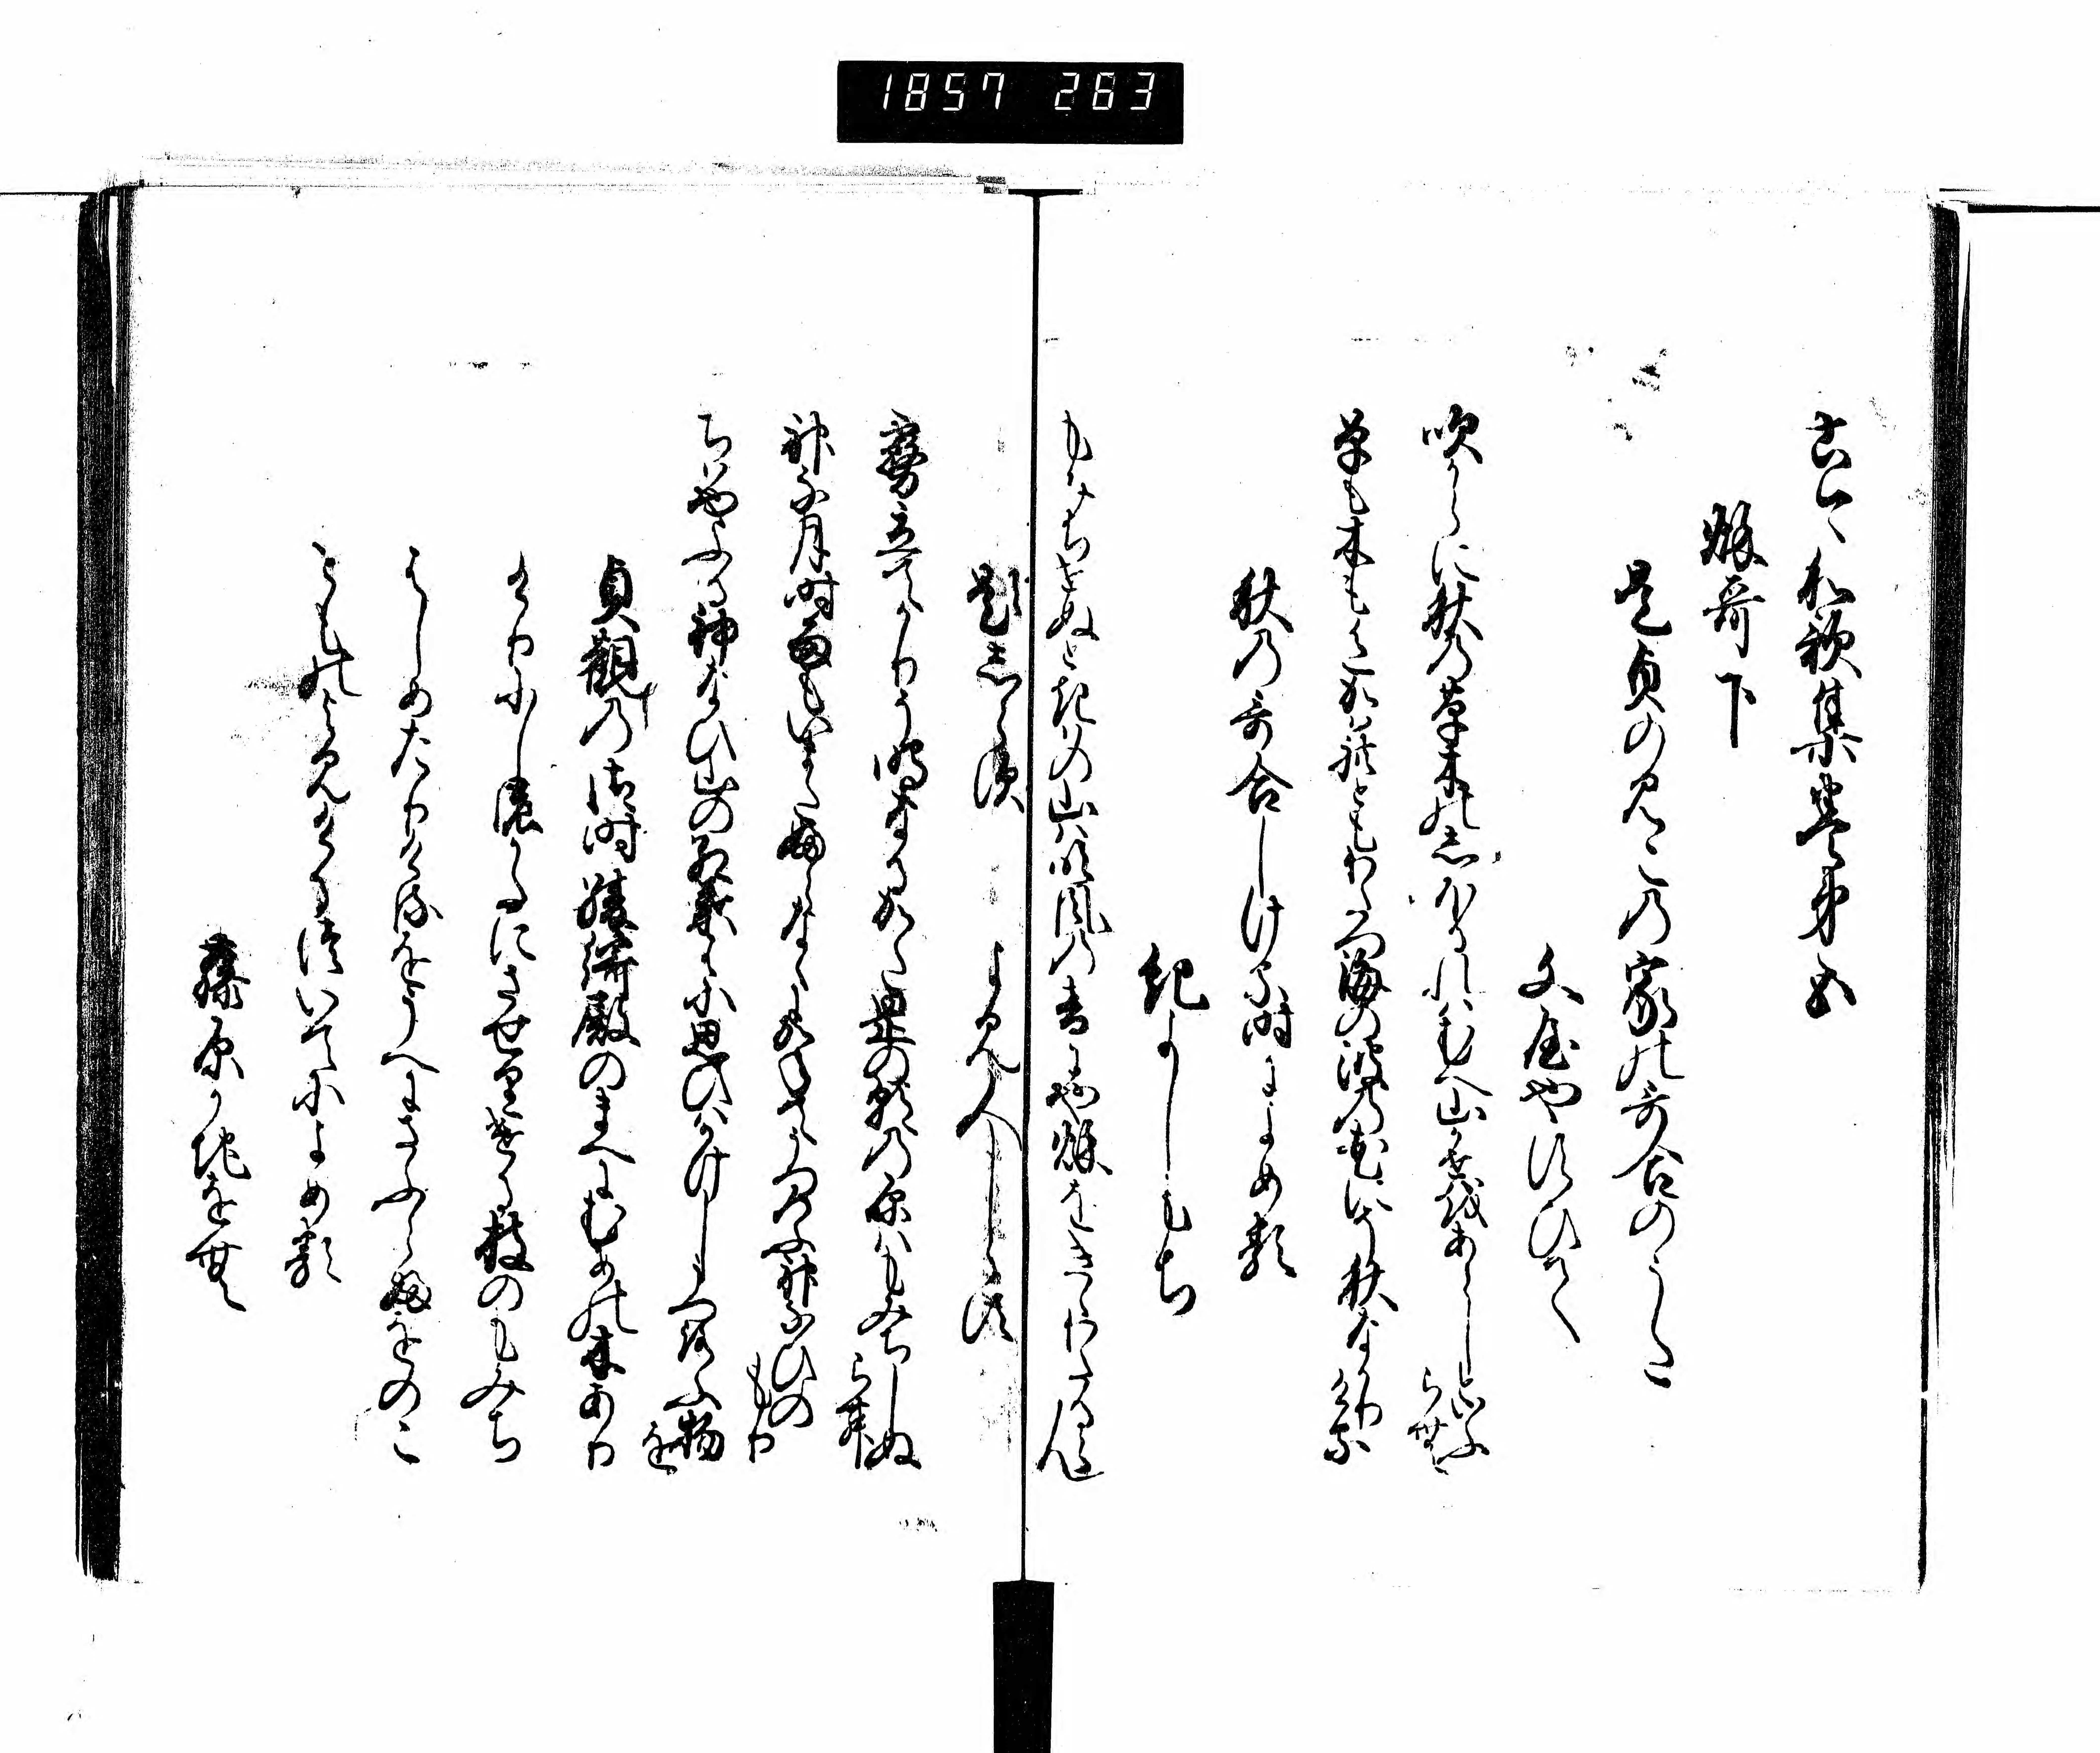 1857 263
古今和歌集巻第五
秌哥下
是貞のみこの家の哥合のうた
文屋やすひて
吹からに秋の草木のしほるれはむへ山かせをあらしといふ
らむ
草も木も色かはれともわたつ海の波の花にそ秋なかりける
秋の哥合しける時によめる
紀よしもち
もみちせぬときはの山は吹風の音にや秌をきゝわたるらん
題しらす
よみ人しらす
霧立てかりそ鳴なるかた岡の朝の原はもみちしぬ
らむ
神な月時雨もいまたふらなくにかねてうつろふ神なひの
もり
ちはやふる神なひ山の紅葉はに思ひはかけしうつろふ物
を
貞観の御時綾綺殿のまへにむめの木あり
けりにしの方にさせりける枝のもみち
はしめたりけるをうへにさふらふをのこ
とものよみけるついてによめる
藤原かちをむ